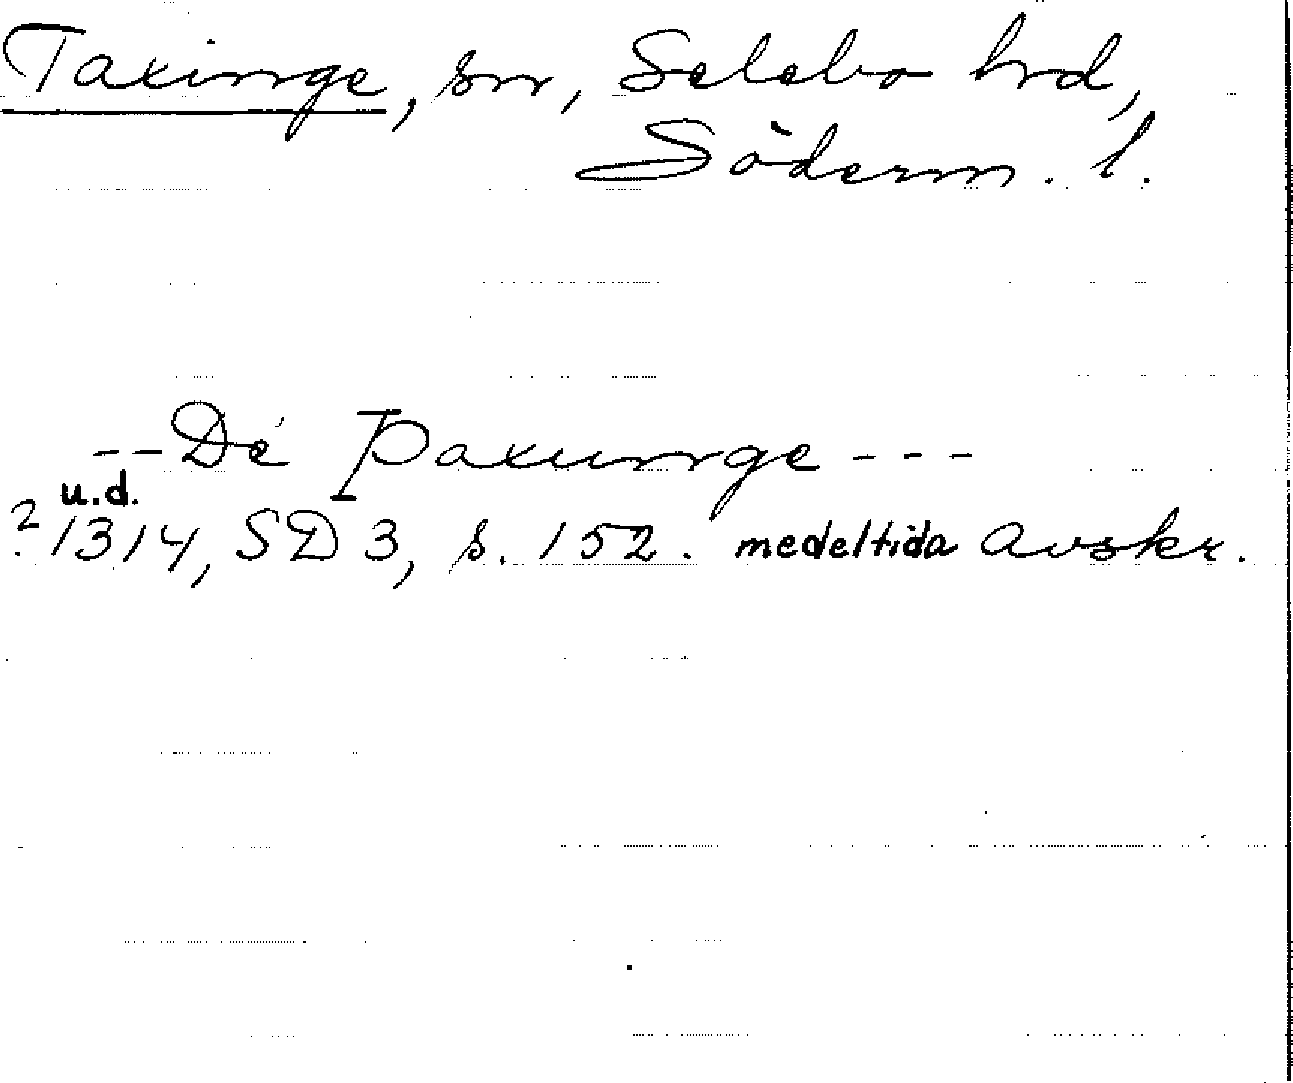 Taxinge, sn, Selebo hrd,
Söderm. l.
-- De þaxunge ---
u.d.
? 1314, SD 3, s. 152. medeltida Avskr.